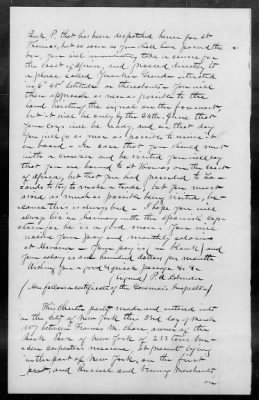 Bark P. that has been despatched hence for St
Thomas, but as soon as you shall have passed the
bar, you will immediately take a course for
the coast of Africa, and proceed directly to
a place called
6° 45' latitude on thereabouts. You will
there approach as near as possible to the
land hoisting the signal on the foremast,
but it will be only by the 24th, June, that
your cargo will be ready, and on that day
You will go as near as possible to receive it
on board. In case that you should meet
with a cruiser and be visited you will say
that you are bound to at on the coast
of Africa, but that you had proceeded to
to try to make a trade; but you must
avoid as much as possible being visited, be-
cause this is always bad. I hope you will
always live in harmony with the Spanish Cap-
tain, for he is a good man. You will
receive your pay and monthly salaries
at Havana (your pay is in blank) and
your salary is one hundred dollars per month
Wishing you a good & quick passage &c &c
(signed) P. A.
(Here follows certificate of the Governor's)
This Charter party made and entered into
in the City of New York the 2nd day of March
1857 between Francis M. owner of the
Bark Para of New York of 233 tons bur-
then carpenters measure, at present lying
in the port of New York, on the first
part, and and Merchants
on